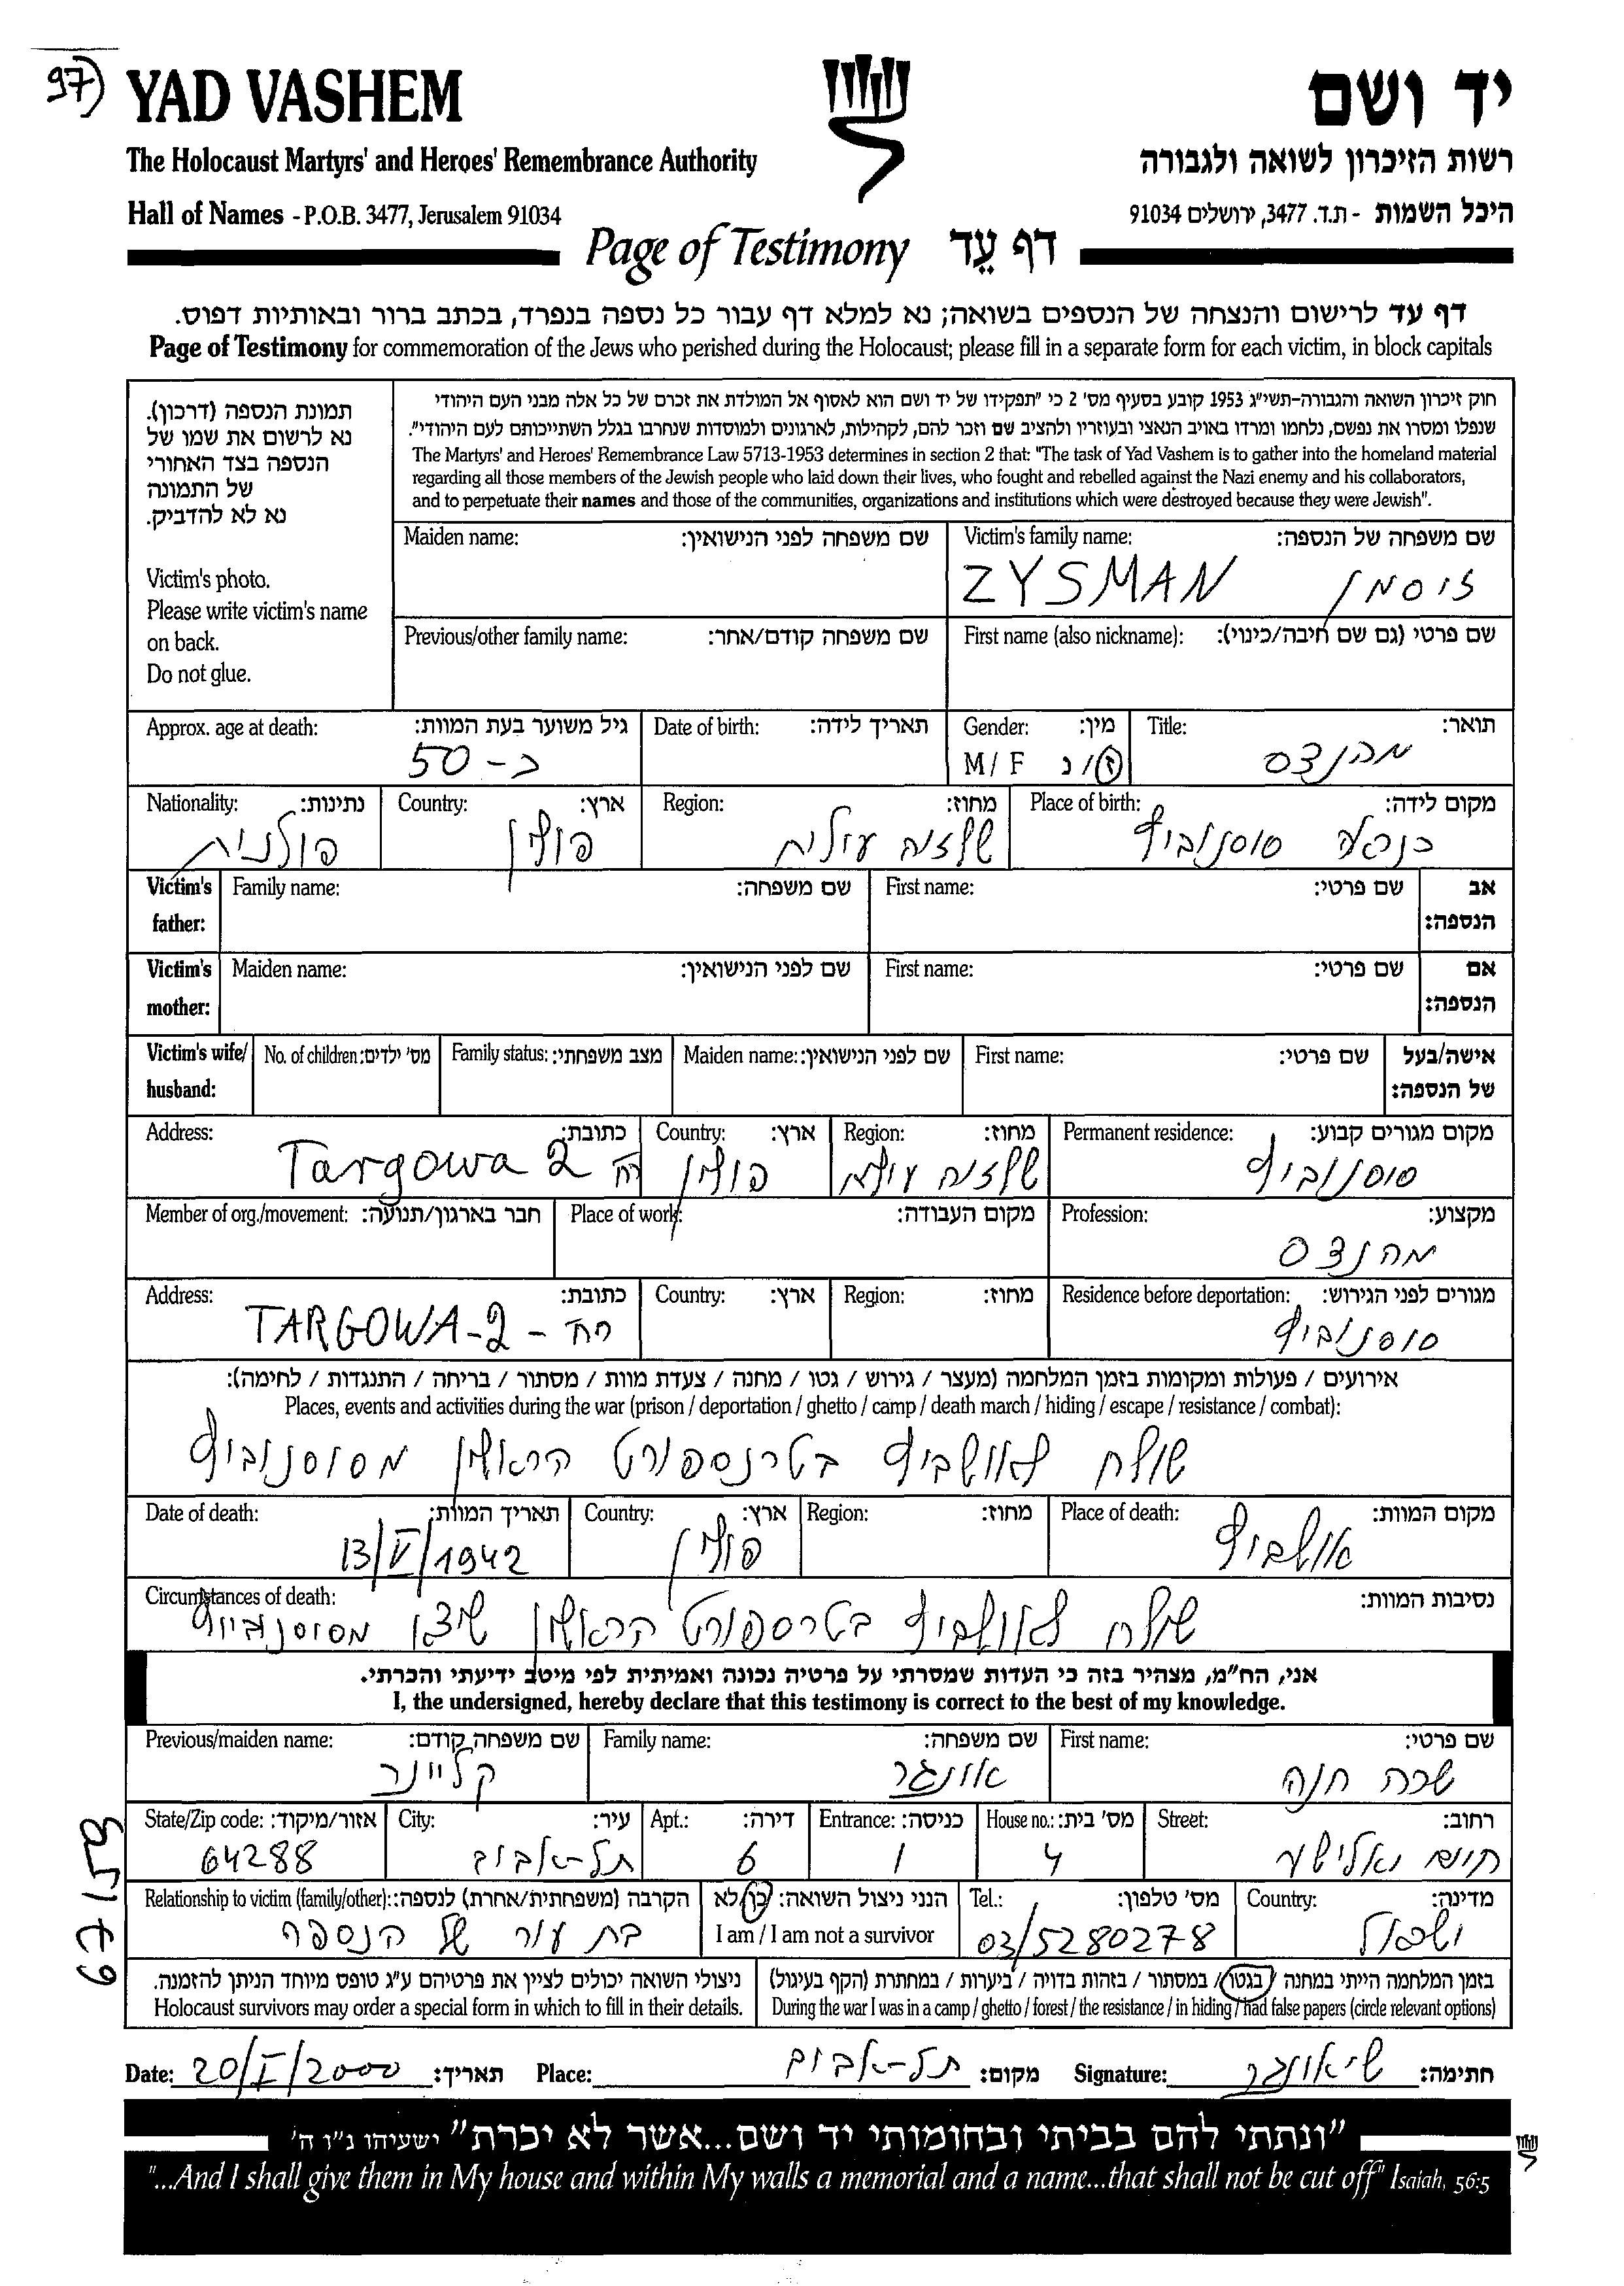 97)
YAD VASHEM
יד ושם
The Holocaust Martyrs' and Heroes' Remembrance Authority
רשות הזיכרון לשואה ולגבורה
Hall of Names - P.O.B. 3477, Jerusalem 91034
היכל השמות - ת.ד. 3477, ירושלים 91034
Page of Testimony דף עֵד
דף עד לרישום והנצחה של הנספים בשואה; נא למלא דף עבור כל נספה בנפרד, בכתב ברור ובאותיות דפוס.
Page of Testimony for commemoration of the Jews who perished during the Holocaust; please fill in a separate form for each victim, in block capitals
תמונת הנספה (דרכון).
נא לרשום את שמו של
הנספה בצד האחורי
של התמונה
נא לא להדביק.
Victim's photo.
Please write victim's name
on back.
Do not glue.
חוק זיכרון השואה והגבורה-תשי"ג 1953 קובע בסעיף מס' 2 כי "תפקידו של יד ושם הוא לאסוף אל המולדת את זכרם של כל אלה מבני העם היהודי
שנפלו ומסרו את נפשם, נלחמו ומרדו באויב הנאצי ובעוזריו ולהציב שם וזכר להם, לקהילות, לארגונים ולמוסדות שנחרבו בגלל השתייכותם לעם היהודי".
The Martyrs' and Heroes' Remembrance Law 5713-1953 determines in section 2 that: "The task of Yad Vashem is to gather into the homeland material
regarding all those members of the Jewish people who laid down their lives, who fought and rebelled against the Nazi enemy and his collaborators,
and to perpetuate their names and those of the communities, organizations and institutions which were destroyed because they were Jewish".
Maiden name: שם משפחה לפני הנישואין:
Victim's family name: שם משפחה של הנספה:
ZYSMAN זיסמן
Previous/other family name: שם משפחה קודם/אחר:
First name (also nickname): שם פרטי (גם שם חיבה/כינוי):
Approx. age at death: גיל משוער בעת המוות:
כ-50
Date of birth: תאריך לידה:
Gender: מין:
M / F ז/נ
Title: תואר:
מהנדס
Nationality: נתינות:
פולנית
Country: ארץ:
פולין
Region: מחוז:
שלזיה עילית
Place of birth: מקום לידה:
כנראה סוסנוביץ
Victim's father:
Family name: שם משפחה:
First name: שם פרטי:
אב הנספה:
Victim's mother:
Maiden name: שם לפני הנישואין:
First name: שם פרטי:
אם הנספה:
Victim's wife/ husband:
No. of children: מס' ילדים:
Family status: מצב משפחתי:
Maiden name: שם לפני הנישואין:
First name: שם פרטי:
אישה/בעל של הנספה:
Address: כתובת:
Targowa 2 רח
Country: ארץ:
פולין
Region: מחוז:
שלזיה עילית
Permanent residence: מקום מגורים קבוע:
סוסנוביץ
Member of org./movement: חבר בארגון/תנועה:
Place of work: מקום העבודה:
Profession: מקצוע:
מהנדס
Address: כתובת:
TARGOWA-2 - רח
Country: ארץ:
Region: מחוז:
Residence before deportation: מגורים לפני הגירוש:
סוסנוביץ
אירועים / פעולות ומקומות בזמן המלחמה (מעצר / גירוש / גטו / מחנה / צעדת מוות / מסתור / בריחה / התנגדות / לחימה):
Places, events and activities during the war (prison / deportation / ghetto / camp / death march / hiding / escape / resistance / combat):
שולח לאושביץ בטרנספורט הראשון מסוסנוביץ
Date of death: תאריך המוות:
13/V/1942
Country: ארץ:
פולין
Region: מחוז:
Place of death: מקום המוות:
אושביץ
Circumstances of death: נסיבות המוות:
שולח לאושביץ בטרספורט הראשון שיצא מסוסנוביץ
אני, הח"מ, מצהיר בזה כי העדות שמסרתי על פרטיה נכונה ואמיתית לפי מיטב ידיעתי והכרתי.
I, the undersigned, hereby declare that this testimony is correct to the best of my knowledge.
Previous/maiden name: שם משפחה קודם:
קליינר
Family name: שם משפחה:
אונגר
First name: שם פרטי:
שרה חנה
State/Zip code: אזור/מיקוד:
64288
City: עיר:
תל-אביב
Apt.: דירה:
6
Entrance: כניסה:
1
House no.: מס' בית:
4
Street: רחוב:
Relationship to victim (family/other): הקרבה (משפחתית/אחרת) לנספה:
בת עיר של הנספה
הנני ניצול השואה: כן/לא
I am / I am not a survivor
Tel.: מס' טלפון:
03/5280278
Country: מדינה:
ישראל
67153
ניצולי השואה יכולים לציין את פרטיהם ע"ג טופס מיוחד הניתן להזמנה.
Holocaust survivors may order a special form in which to fill in their details.
בזמן המלחמה הייתי במחנה / בגטו / במסתור / בזהות בדויה / ביערות / במחתרת (הקף בעיגול)
During the war I was in a camp / ghetto / forest / the resistance / in hiding / had false papers (circle relevant options)
Date: 20/I/2000 תאריך: Place: תל-אביב מקום: Signature: ש' אונגר חתימה:
"ונתתי להם בביתי ובחומותי יד ושם...אשר לא יכרת" ישעיהו נ"ו ה'
"...And I shall give them in My house and within My walls a memorial and a name...that shall not be cut off" Isaiah, 56:5